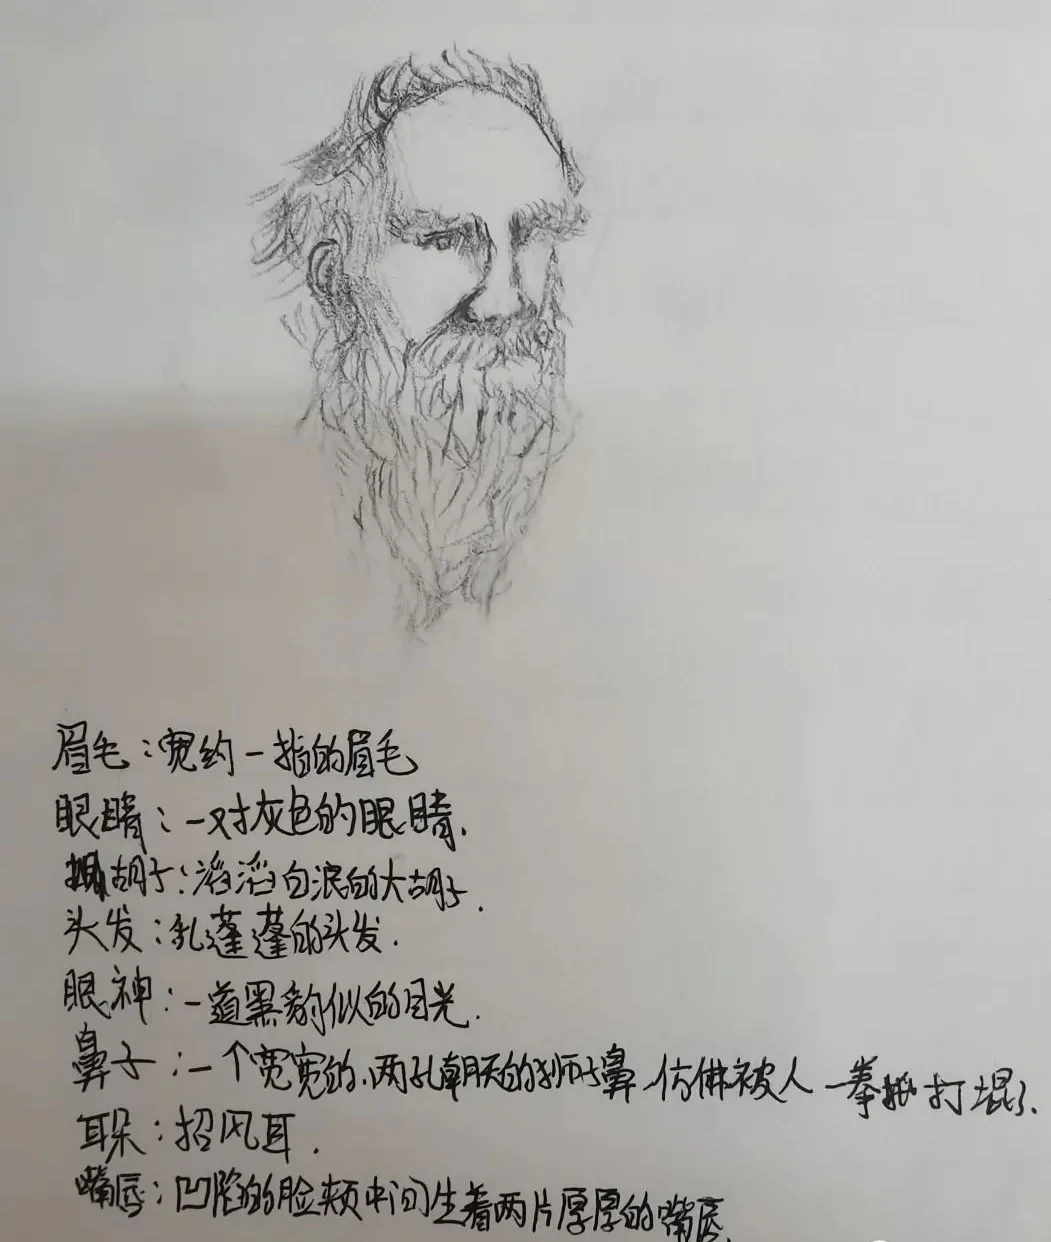 眉毛：宽约一指的眉毛
眼睛：一对灰色的眼睛.
胡子：滔滔白浪的大胡子.
头发：乱蓬蓬的头发.
眼神：一道黑豹似的目光.
鼻子：一个宽宽的、两孔朝天的狮子鼻 仿佛被人一拳打塌了.
耳朵：招风耳.
嘴唇：凹陷的脸颊中间生着两片厚厚的嘴唇.